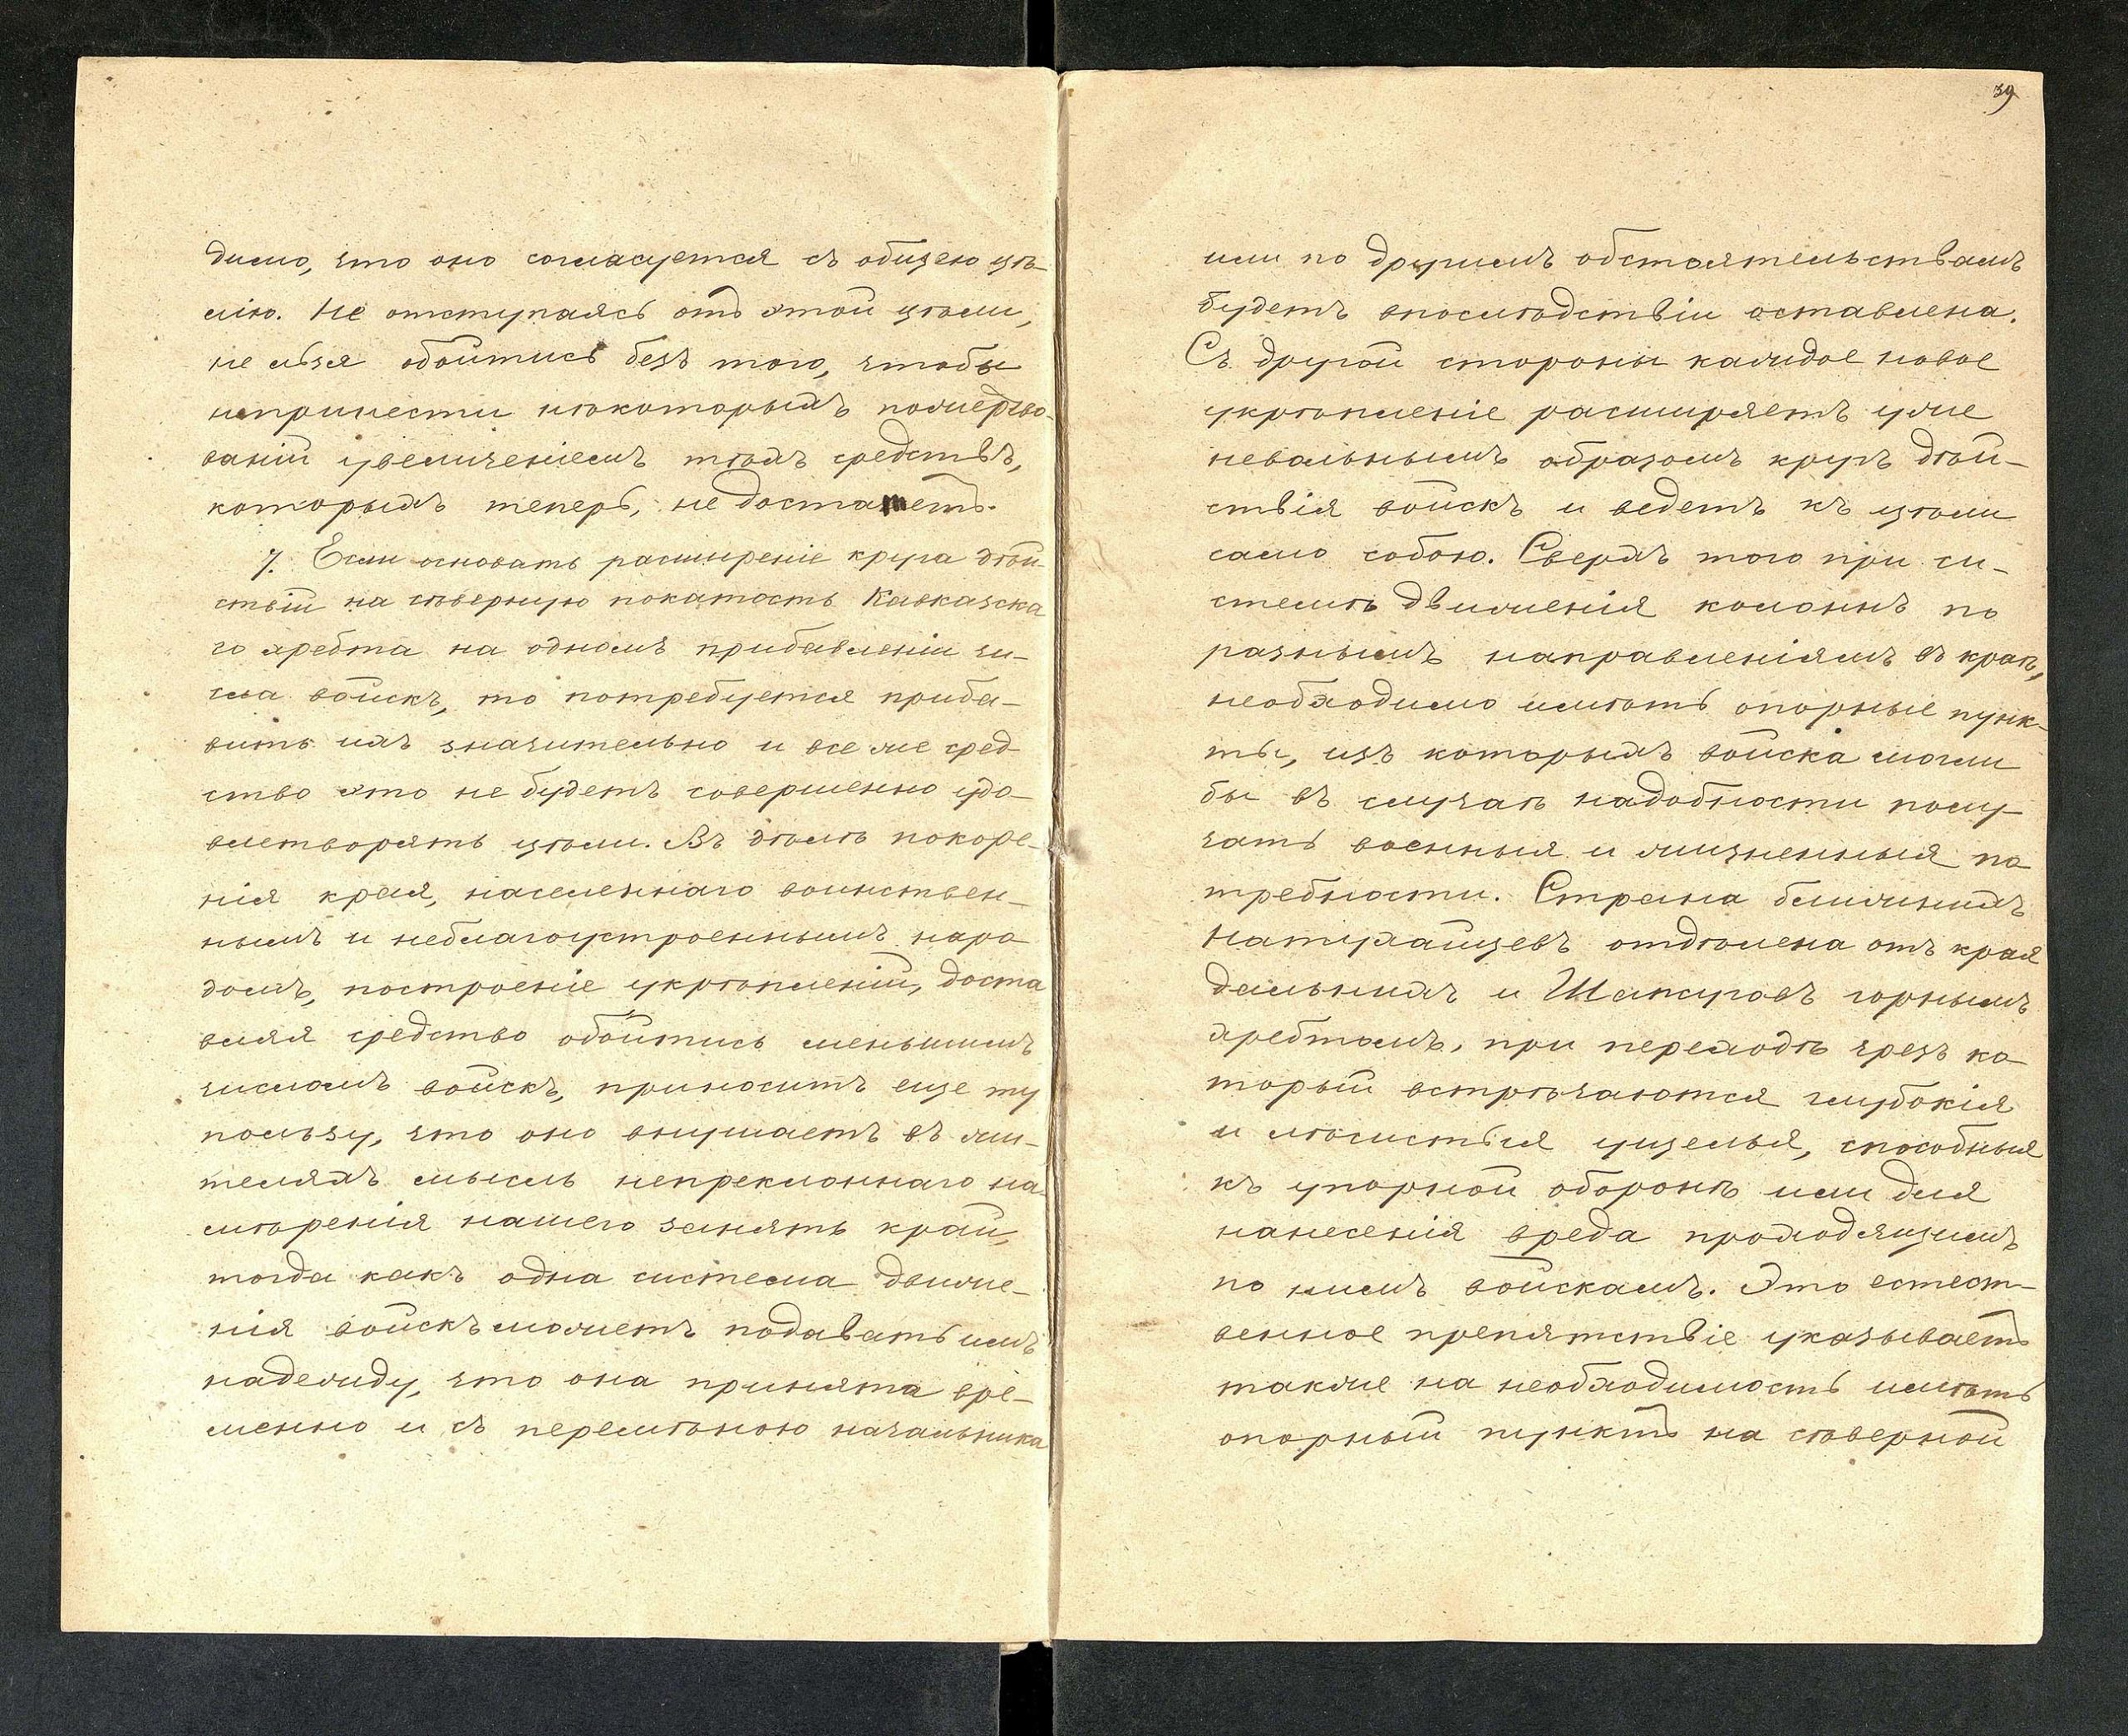 димо, что оно согласуется съ общею цѣ-
лію. Не отступаясь отъ этой цѣли,
не льзя обойтись безъ того, чтобы
непринести нѣкоторыхъ пожертво-
ваній увеличеніемъ тѣхъ средствъ,
которыхъ теперь, не достаетъ.
7. Если основать расширеніе круга дѣй-
ствій на сѣверную покатость Кавказска
го хребта на одномъ прибавленіи чи-
сла войскъ, то потребуется приба-
вить ихъ значительно и все же сред-
ство это не будетъ совершенно удо-
влетворять цѣли. Въ дѣлѣ покоре-
нія края, населеннаго воинствен-
нымъ и неблагоустроеннымъ наро
домъ, построеніе укрѣпленій, доста
вляя средство обойтись меньшимъ
числомъ войскъ, приноситъ еще ту
пользу, что оно внушаетъ въ жи-
теляхъ мысль непреклоннаго на-
мѣренія нашего занять край,
тогда какъ одна система движе-
нія войскъ можетъ подавать имъ
надежду, что она принята вре-
менно и съ перемѣною начальника
39
или по другимъ обстоятельствамъ
будетъ впослѣдствіи оставлена.
Съ другой стороны каждое новое
укрѣпленіе расширяетъ уже
невольнымъ образомъ кругъ дѣй-
ствія войскъ и ведетъ къ цѣли
само собою. Сверхъ того при си-
стемѣ движенія колоннъ по
разнымъ направленіямъ въ краѣ,
необходимо имѣть опорные пунк-
ты, изъ которыхъ войска могли
бы въ случаѣ надобности полу-
чать военныя и жизненныя по
требности. Страна ближнихъ
Натухайцевъ отдѣлена отъ края
дальнихъ и Шапсуговъ горнымъ
хребтомъ, при переходѣ чрезъ ко
торый встрѣчаются глубокія
и лѣсистыя ущелья, способныя
къ упорной оборонѣ или для
нанесенія вреда проходящимъ
по нимъ войскамъ. Это естест-
венное препятствіе указываетъ
также на необходимость имѣть
опорный пунктъ на сѣверной